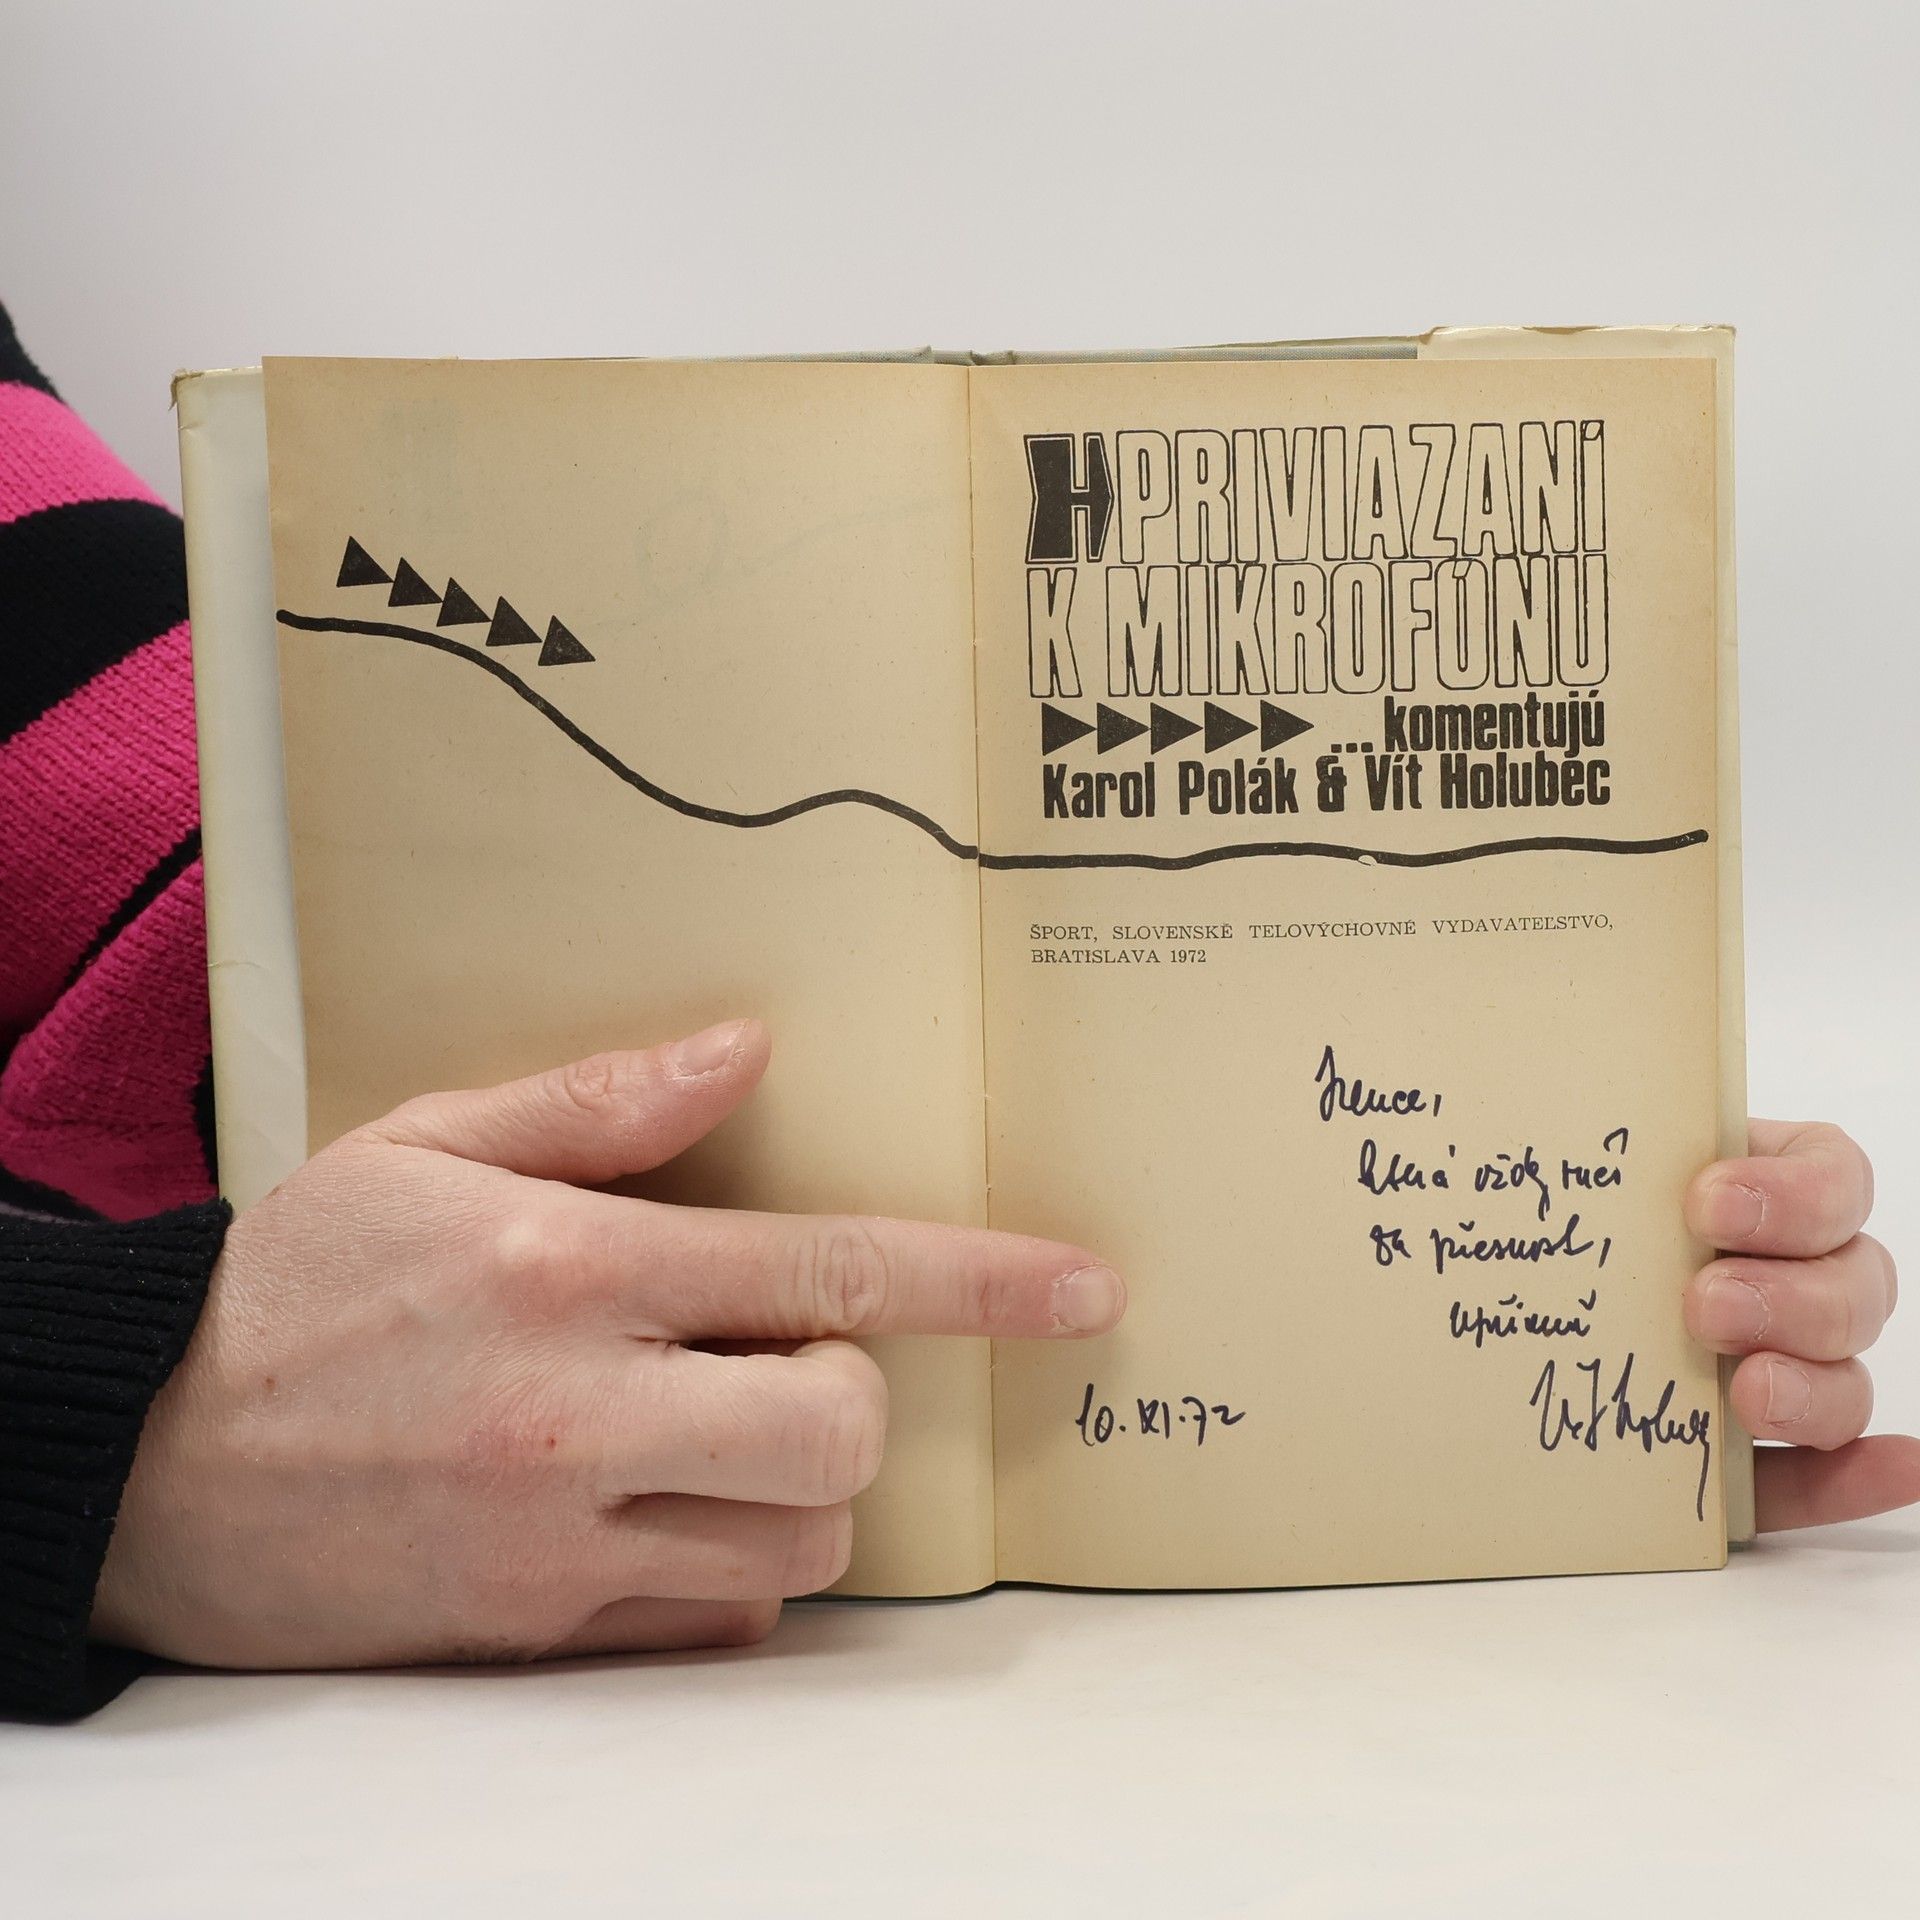 PRIVIAZANÍ
K MIKROFÓNU
...komentujú
Karol Polák & Vít Holubec
ŠPORT, SLOVENSKÉ TELOVÝCHOVNÉ VYDAVATEĽSTVO,
BRATISLAVA 1972
Irence,
která vždy ručí
za přesnost,
upřímně
Vít Holubec
10.XI.72